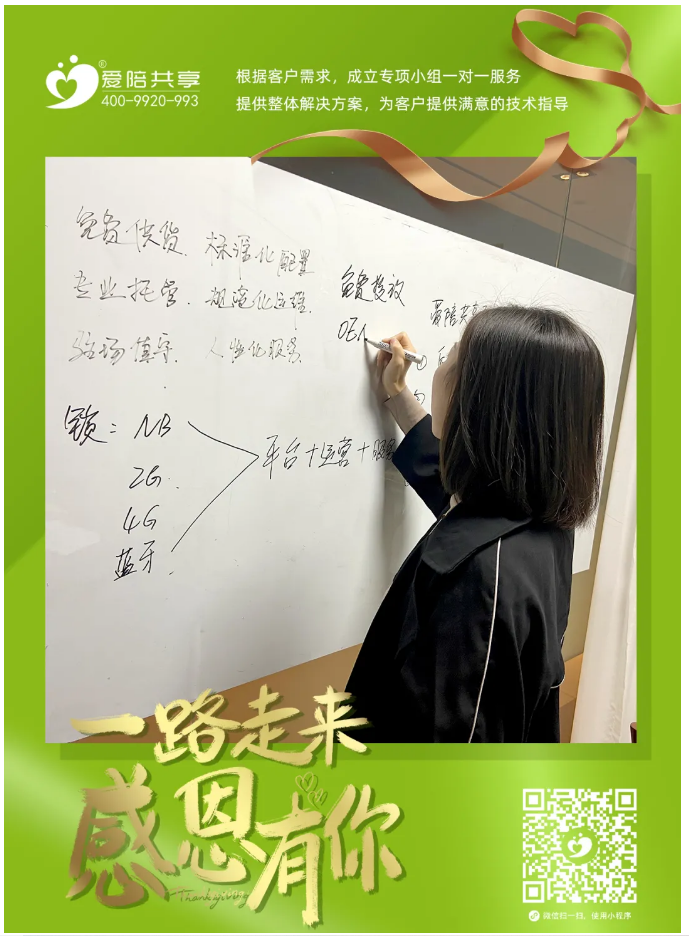 爱陪共享
®
400-9920-993
根据客户需求，成立专项小组一对一服务
提供整体解决方案，为客户提供满意的技术指导
免费供货. 标准化配置
专业托管. 规范化运维.
驻场值守. 人性化服务.
免费投放
OEM
爱陪共享
①
锁：NB
2G.
4G
蓝牙.
平台+运营+服务
一路走来
感恩有你
Thanksgiving
微信扫一扫，使用小程序